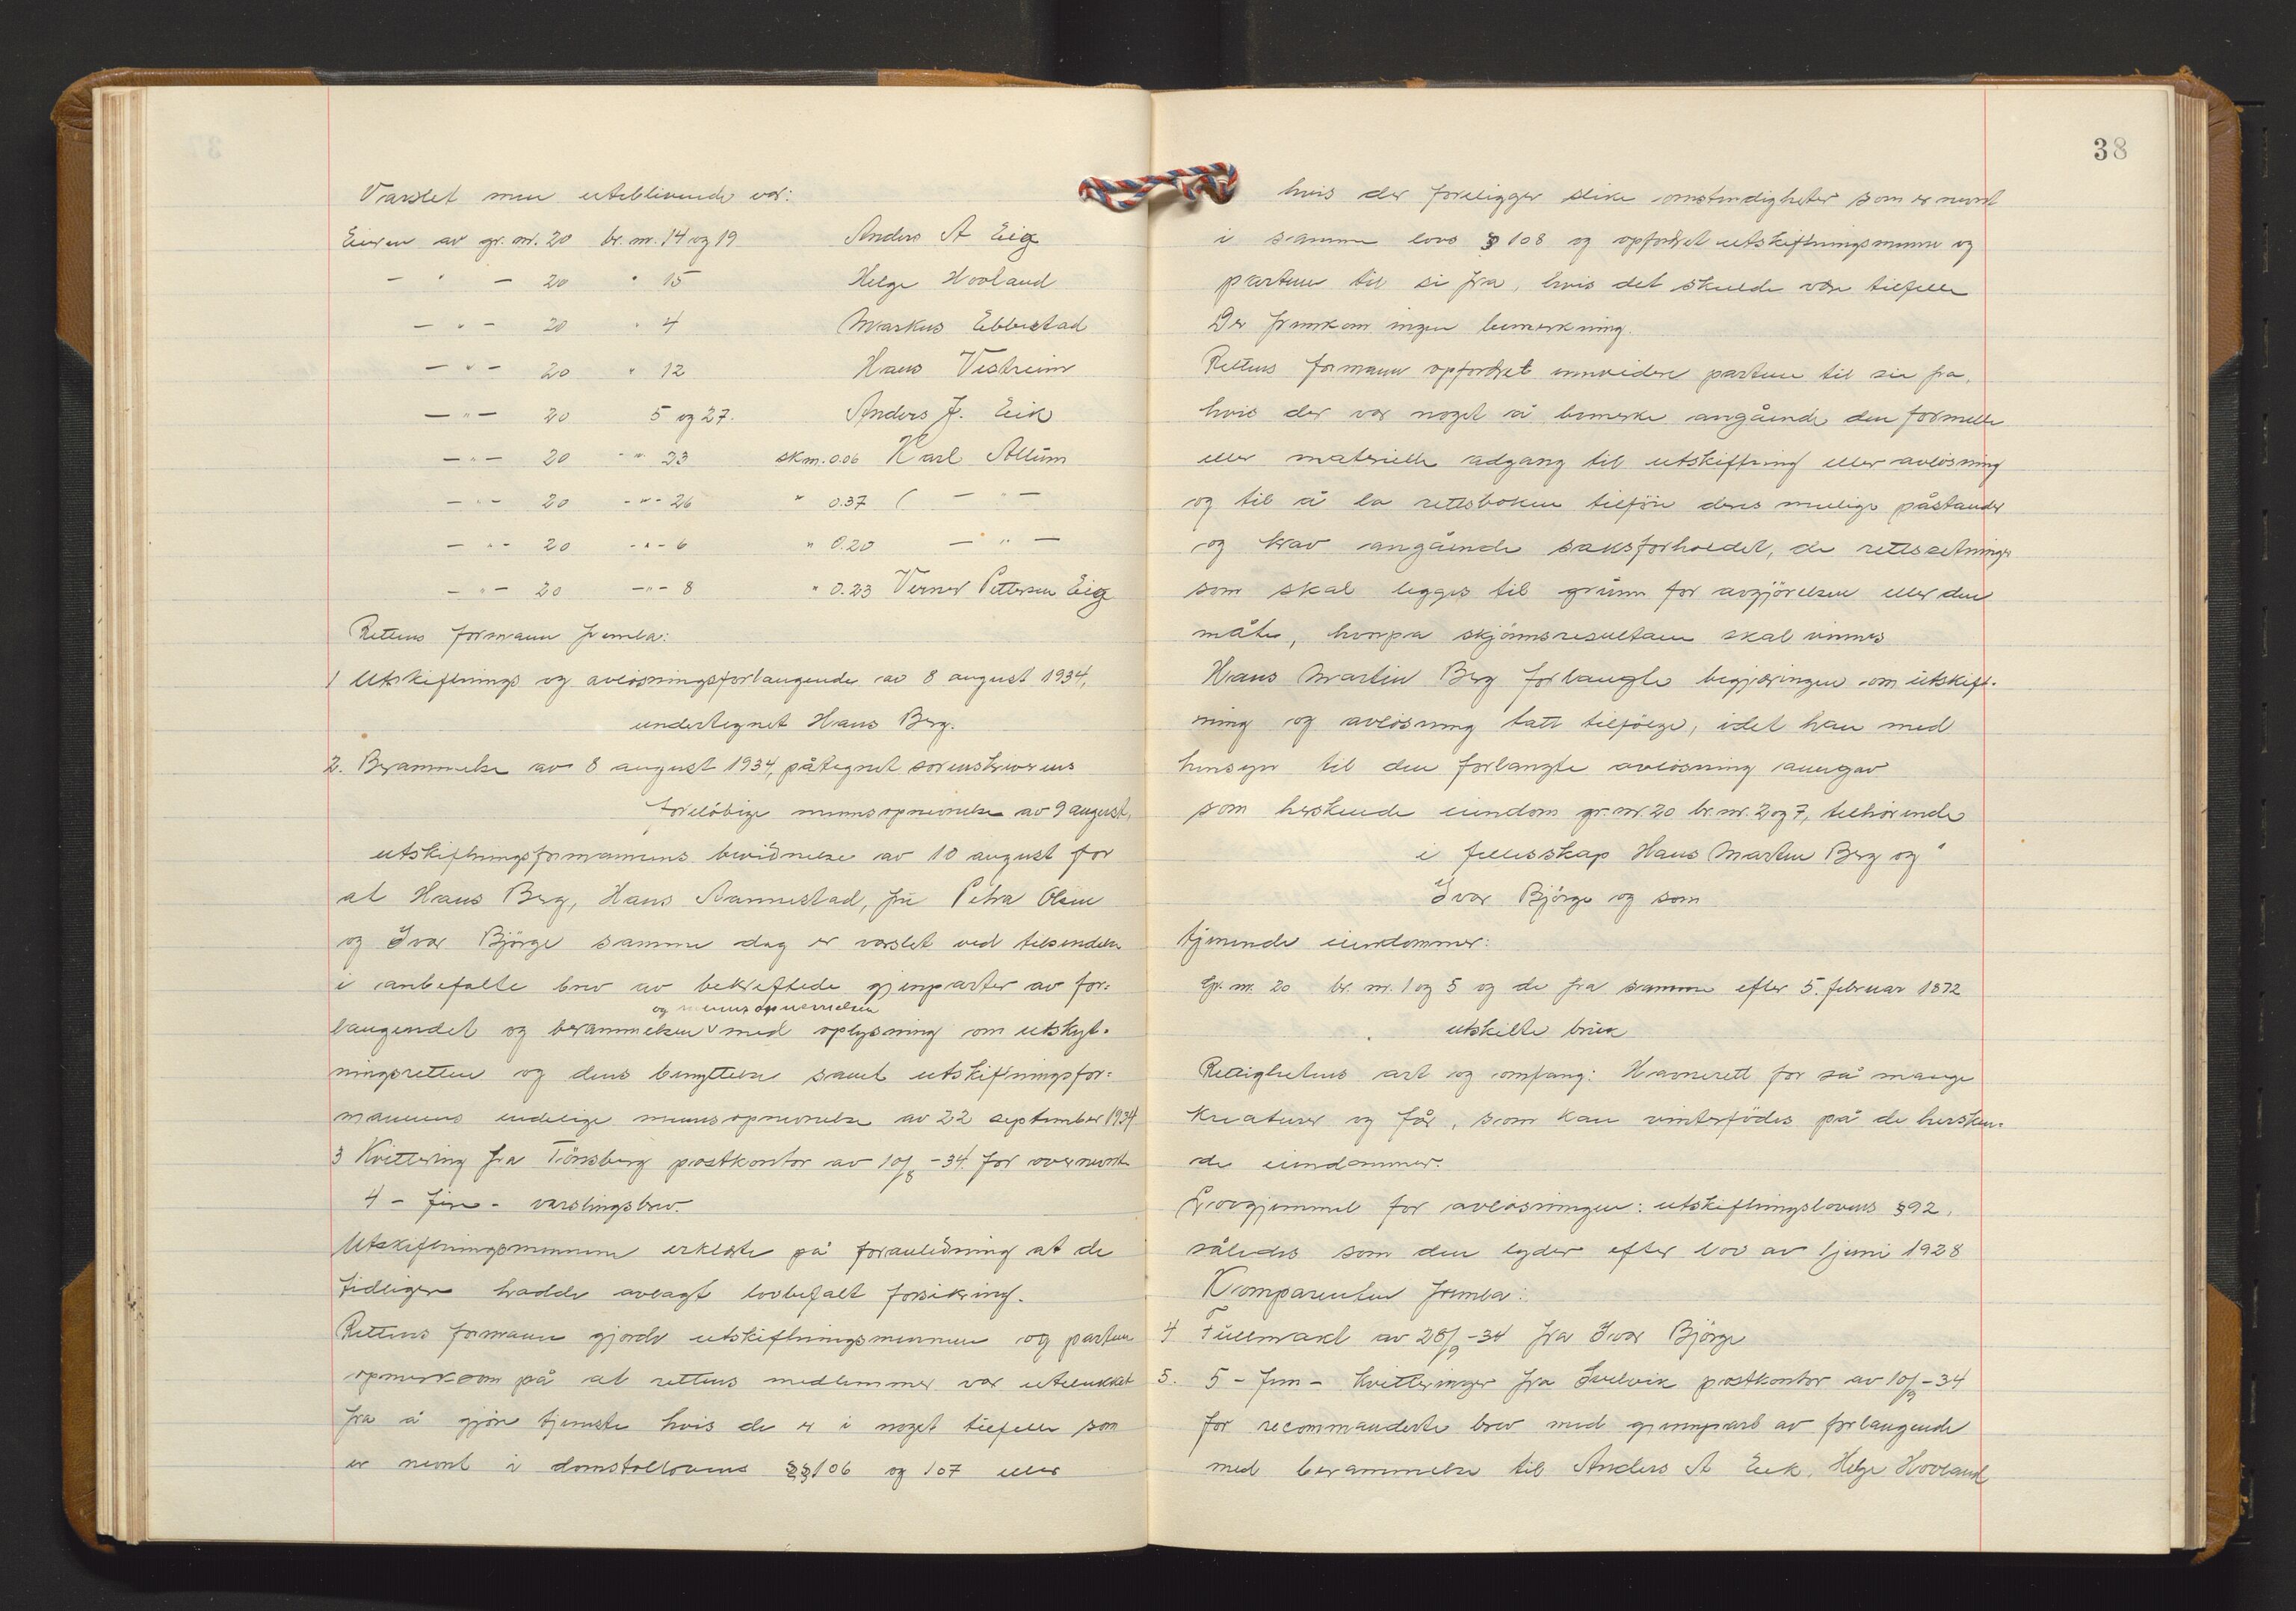 Varslet men uteblivende var:
Eieren av gr. nr. 20 br. nr. 14 og 19 Anders A Eig
— " — 20 " 15 Helge Hovland
— " — 20 " 4 Markus Ebbestad
— " — 20 " 12 Hans Vestreim
— " — 20 5 og 27. Anders J. Eik
— " — 20 - " - 23 skm. 0.06 Karl Allum
— " — 20 - " - 26 " 0.37 ( — " —
— " — 20 - " - 6 " 0.20 — " —
— " — 20 — " - 8 " 0.23 Verner Pettersen Eig
Rettens formann fremla:
1 Utskiftnings og avløsningsforlangende av 8 august 1934,
undertegnet Hans Berg.
2. Berammelse av 8 august 1934, påtegnet sorenskriverens
foreløbige mannsopnevnelse av 9 august,
utskiftningsformannens bevidnelse av 10 august for
at Hans Berg, Hans Aannestad, fru Petra Olsen
og Ivar Björge samme dag er varslet ved tilsendelse
i anbefalte brev av bekreftede gjenparter av for=
og mennsopnevnelsen
langendet og berammelsen v med oplysning om utskift-
ningsretten og dens benyttelse samt utskiftningsfor=
mannens endelige mannsopnevnelse av 22 september 1934
3 Kvittering fra Tönsberg postkontor av 10/8 -34 for overnevnte
4 - fire - varslingsbrev.
Utskiftningsmennene erklærte på foranledning at de
tidligere hadde avlagt lovbefalt forsikring.
Rettens formann gjorde utskiftningsmennene og partene
opmerksom på at rettens medlemmer var utelukket
fra å gjöre tjeneste hvis de er i noget tilfelle som
er nevnt i domstollovens §§ 106 og 107 eller
38
hvis der foreligger slike omstendigheter som er nevnt
i samme lovs § 108 og opfordret utskiftningsmenn og
partene til si fra, hvis det skulde være tilfelle
Der fremkom ingen bemerkning.
Rettens formann opfordret innvidere partene til sie fra,
hvis der var noget å bemerke angående den formelle
eller materielle adgang til utskiftning eller avlösning
og til å la rettsboken tilföre deres mulige påstander
og krav angående saksforholdet, de rettssetninger
som skal legges til grunn for avgjörelsen eller den
måte, hvorpa skjönnsresultatene skal vinnes
Hans Martin Berg forlangte begjæringen om utskift-
ning og avlösning tatt tilfölge, idet han med
hensyn til den forlangte avlösning anngav
som herskende eiendom gr. nr. 20 br. nr. 2 og 7, tilhörende
i fellesskap Hans Martin Berg og
Ivar Björge og som
tjenende eiendommer:
Gr. nr. 20 br. nr. 1 og 5 og de fra samme efter 5. februar 1872
utskilte bruk
Rettighetens art og omfang: Havnerett for så mange
kreaturer og får, som kan vinterfödes på de hersken=
de eiendommer.
Lovgjemmel for avlösningen: utskiftningslovens § 92,
således som den lyder efter lov av 1 juni 1928
Komparenten fremla:
4 Fullmakt av 28/9 -34 fra Ivar Björge
5. 5 - fem - kvitteringer fra Svelvik postkontor av 10/9 -34
for recommanderte brev med gjennpart av forlangende
med berammelse til Anders A Eek, Helge Hovland